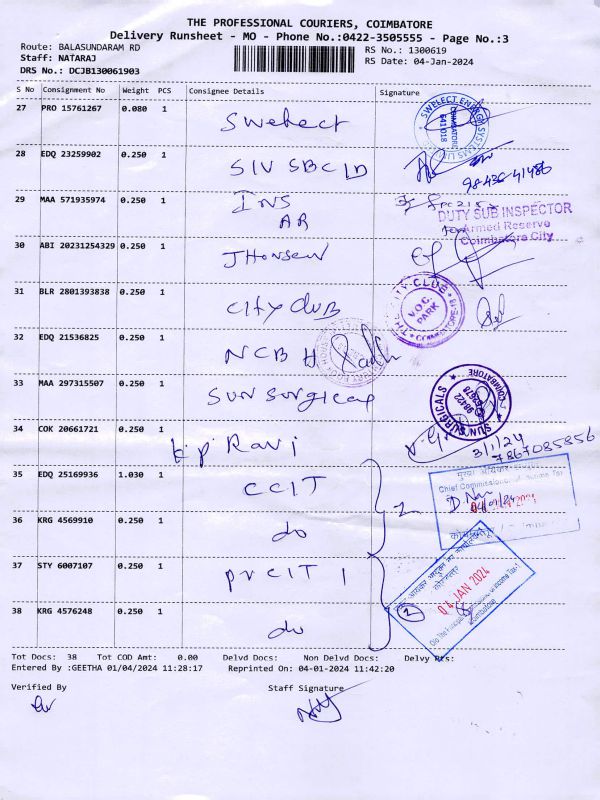 THE PROFESSIONAL COURIERS, COIMBATORE
Delivery Runsheet - MO - Phone No.:0422-3505555 - Page No.:3
Route: BALASUNDARAM RD
RS No.: 1300619
Staff: NATARAJ
RS Date: 04-Jan-2024
DRS No.: DCJB130061903
S No Consignment No Weight PCS Consignee Details Signature
27 PRO 15761267 0.080 1 Swelect
SWELECT ENERGY SYSTEMS LTD COIMBATORE 641018
28 EDQ 23259902 0.250 1 SIV SBCID
98436-41486
29 MAA 571935974 0.250 1 INS
AR
DUTY SUB INSPECTOR
Armed Reserve
Coimbatore City
30 ABI 20231254329 0.250 1 JHonsen
31 BLR 2801393838 0.250 1 City CluB
CITY CLUB V.O.C. PARK COIMBATORE-18
32 EDQ 21536825 0.250 1 NCB H
33 MAA 297315507 0.250 1 SUN SURGICAL
SUN SURGICALS COIMBATORE
34 COK 20661721 0.250 1 K P Ravi
3/1/24
7867085856
35 EDQ 25169936 1.030 1 CCIT
2
Chief Commissioner of Income Tax
36 KRG 4569910 0.250 1 do
37 STY 6007107 0.250 1 PrCIT 1
04 JAN 2024
2
38 KRG 4576248 0.250 1 do
Tot Docs: 38 Tot COD Amt: 0.00 Delvd Docs: Non Delvd Docs: Delvy Prs:
Entered By :GEETHA 01/04/2024 11:28:17 Reprinted On: 04-01-2024 11:42:20
Verified By Staff Signature